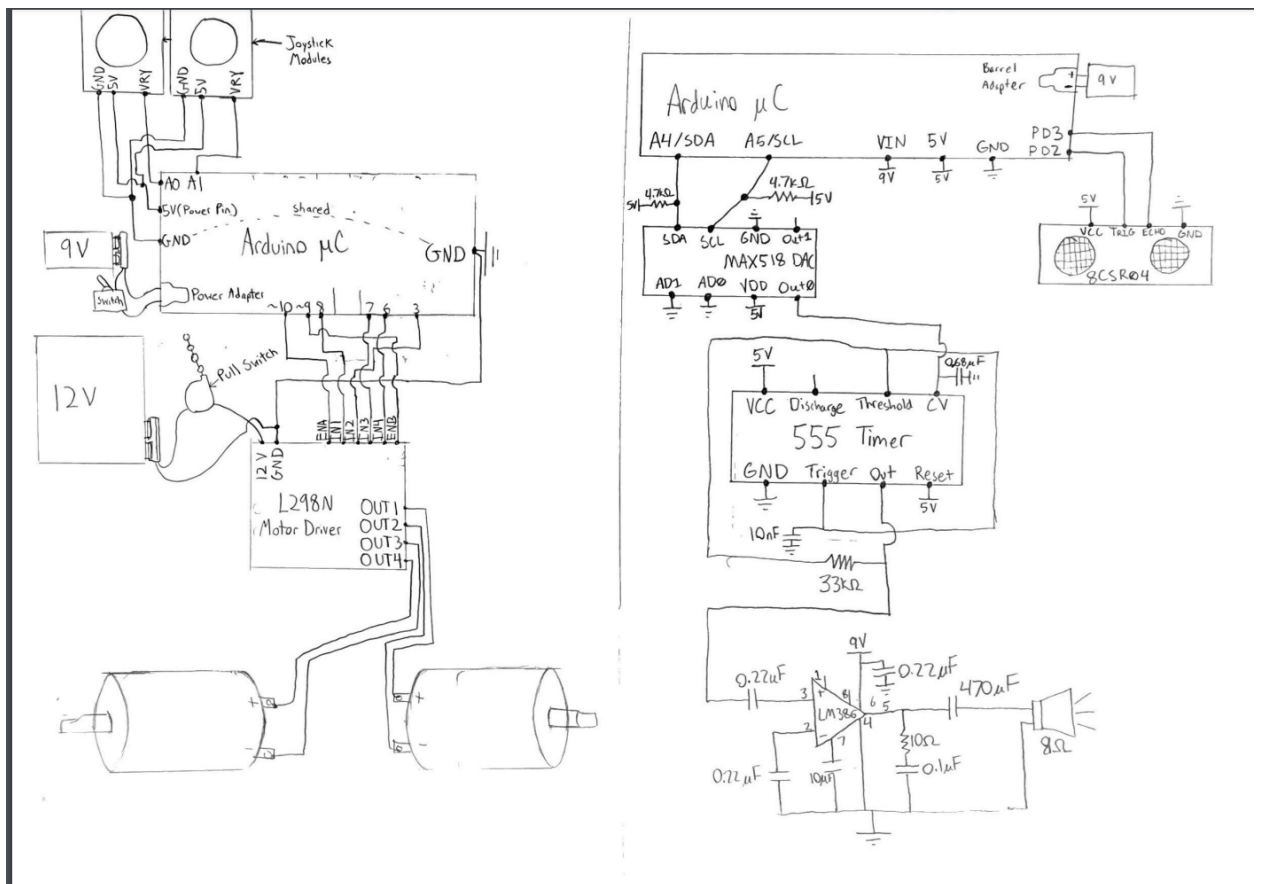 Joystick
Modules
GND
5V
VRY
GND
5V
VRY
A0 A1
5V(Power Pin)
shared
GND
Arduino µC
GND
9V
Switch
Power Adapter
~10 ~9 8 7 6 3
Pull Switch
12V
ENA
IN1
IN2
IN3
IN4
ENB
12 V
GND
L298N
Motor Driver
OUT1
OUT2
OUT3
OUT4
+
-
+
-
Barrel
Adapter
+
-
9V
Arduino µC
A4/SDA A5/SCL VIN 5V GND
PD3
PD2
9V
5V
4.7kΩ
5V
4.7kΩ
5V
SDA SCL GND Out1
MAX518 DAC
AD1 AD0 VDD Out0
5V
5V
VCC TRIG ECHO GND
8CSR04
5V
0.68µF
VCC Discharge Threshold CV
555 Timer
GND Trigger Out Reset
5V
10nF
33kΩ
9V
0.22µF
0.22µF
470µF
3
1
+
8
6
5
LM386
4
2
-
7
10Ω
0.1µF
0.22µF
10µF
8Ω